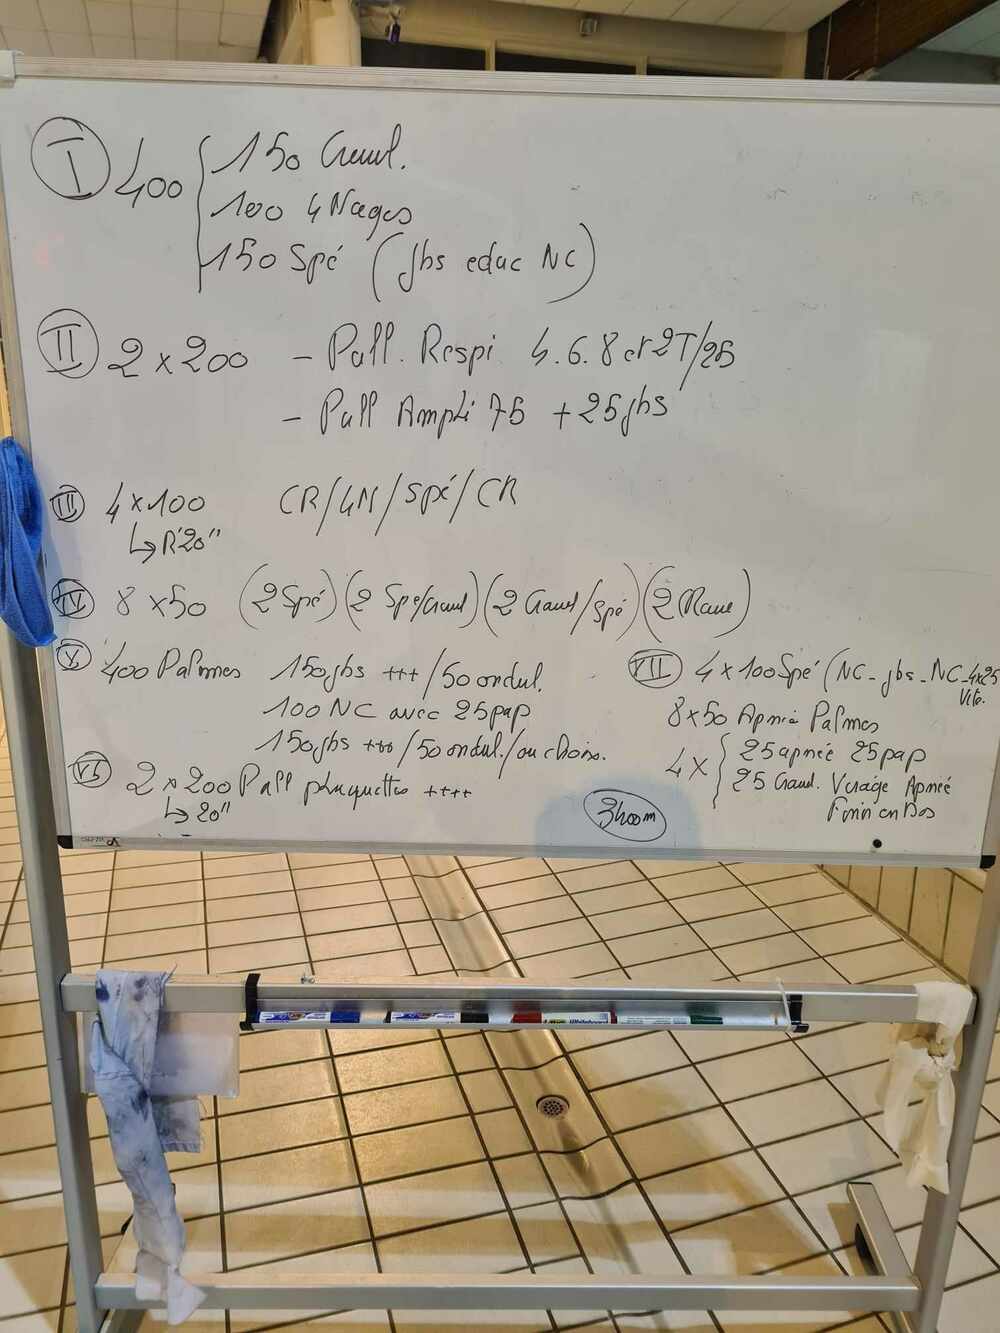 I 400 { 150 Crawl.
100 4 Nages
150 Spé (jbs educ NC)
II 2 x 200 - Pull. Respi 4.6.8 et 2T/25
- Pull Ampli 75 + 25 jbs
III 4 x 100 CR/4N/Spé/CR
↳ R 20"
IV 8 x 50 (2 Spé) (2 Spé/Crawl) (2 Crawl/Spé) (2 )
V 400 Palmes 150 jbs +++/50 ondul.
100 NC avec 25 pap
150 jbs +++/50 ondul./ou choix.
VI 2 x 200 Pull plaquettes ++++
↳ 20"
VII 4 x 100 Spé (NC - jbs - NC - 4x25
Vite.
8 x 50 Apnée Palmes
4 x { 25 apnée 25 pap
25 Crawl. Virage Apnée
Finir en Dos
3400m